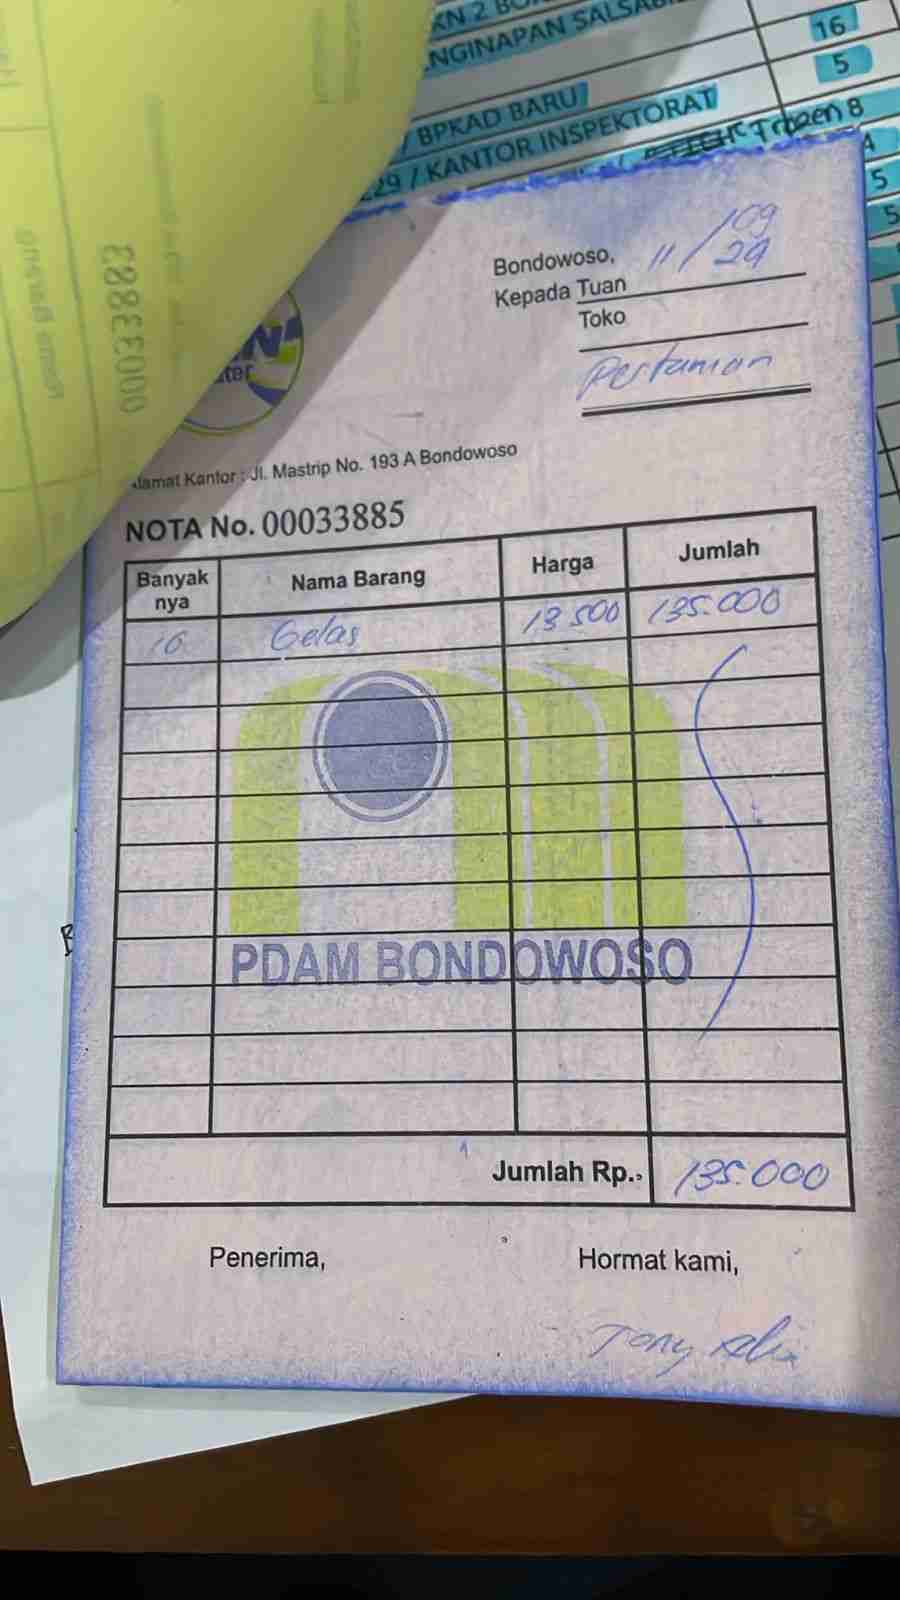 KN 2 BO
ENGINAPAN SALSAB
16
5
/ BPKAD BARU
229 / KANTOR INSPEKTORAT
Trozen 8
5
5
00033883
Nama Barang
Bondowoso, 11/09
29
Kepada Tuan
Toko
Pertaman
ter
Alamat Kantor : Jl. Mastrip No. 193 A Bondowoso
NOTA No. 00033885
Banyak nya Nama Barang Harga Jumlah
10 Gelas 13.500 135.000
PDAM BONDOWOSO
Jumlah Rp. 135.000
Penerima, Hormat kami,
Tony